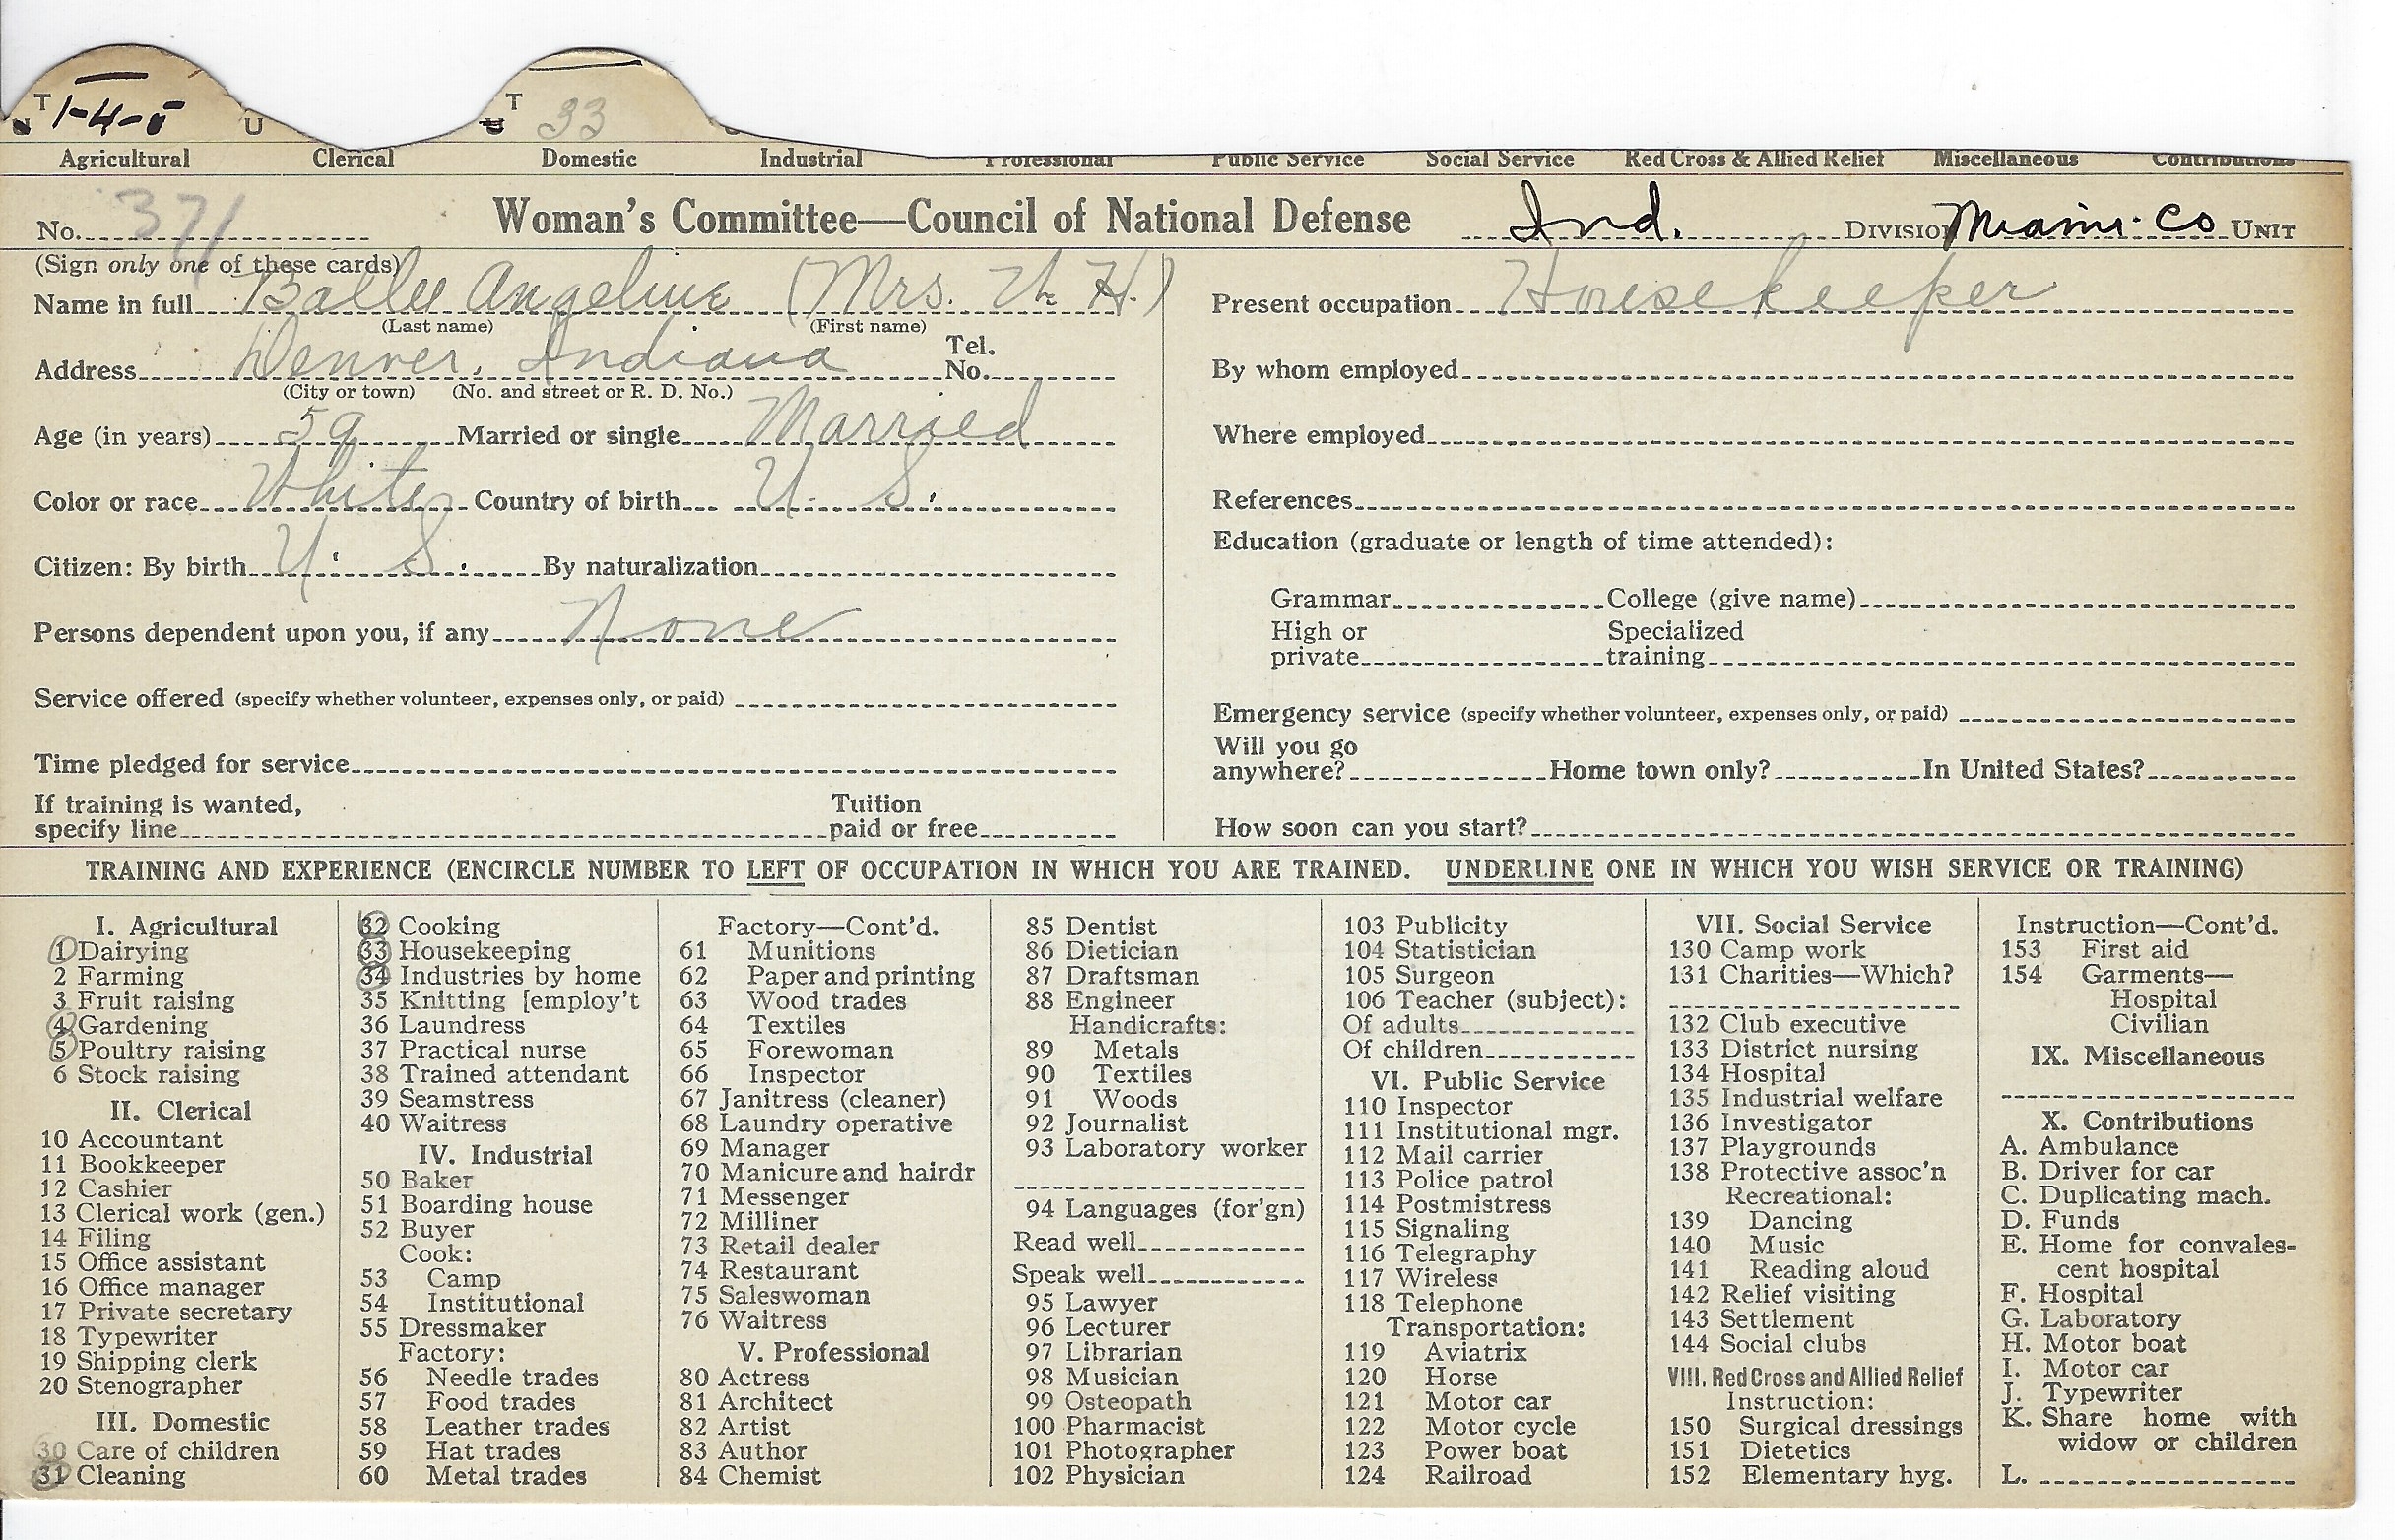 T 1-4-5 U T 33
Agricultural Clerical Domestic Industrial Professional Public Service Social Service Red Cross & Allied Relief Miscellaneous Contributions
No. 371 Woman's Committee—Council of National Defense Ind. Division Miami Co Unit
(Sign only one of these cards)
Name in full Angeline (Mrs. H.)
(Last name) (First name)
Address Denver, Indiana Tel. No.
(City or town) (No. and street or R. D. No.)
Age (in years) 59 Married or single Married
Color or race White Country of birth U. S.
Citizen: By birth U. S. By naturalization
Persons dependent upon you, if any None
Service offered (specify whether volunteer, expenses only, or paid)
Time pledged for service
If training is wanted,
specify line Tuition paid or free
Present occupation Housekeeper
By whom employed
Where employed
References
Education (graduate or length of time attended):
Grammar College (give name)
High or private Specialized training
Emergency service (specify whether volunteer, expenses only, or paid)
Will you go
anywhere? Home town only? In United States?
How soon can you start?
TRAINING AND EXPERIENCE (ENCIRCLE NUMBER TO LEFT OF OCCUPATION IN WHICH YOU ARE TRAINED. UNDERLINE ONE IN WHICH YOU WISH SERVICE OR TRAINING)
I. Agricultural
1 Dairying
2 Farming
3 Fruit raising
4 Gardening
5 Poultry raising
6 Stock raising
II. Clerical
10 Accountant
11 Bookkeeper
12 Cashier
13 Clerical work (gen.)
14 Filing
15 Office assistant
16 Office manager
17 Private secretary
18 Typewriter
19 Shipping clerk
20 Stenographer
III. Domestic
30 Care of children
31 Cleaning
32 Cooking
33 Housekeeping
34 Industries by home
35 Knitting [employ't
36 Laundress
37 Practical nurse
38 Trained attendant
39 Seamstress
40 Waitress
IV. Industrial
50 Baker
51 Boarding house
52 Buyer
Cook:
53 Camp
54 Institutional
55 Dressmaker
Factory:
56 Needle trades
57 Food trades
58 Leather trades
59 Hat trades
60 Metal trades
Factory—Cont'd.
61 Munitions
62 Paper and printing
63 Wood trades
64 Textiles
65 Forewoman
66 Inspector
67 Janitress (cleaner)
68 Laundry operative
69 Manager
70 Manicure and hairdr
71 Messenger
72 Milliner
73 Retail dealer
74 Restaurant
75 Saleswoman
76 Waitress
V. Professional
80 Actress
81 Architect
82 Artist
83 Author
84 Chemist
85 Dentist
86 Dietician
87 Draftsman
88 Engineer
Handicrafts:
89 Metals
90 Textiles
91 Woods
92 Journalist
93 Laboratory worker
94 Languages (for'gn)
Read well
Speak well
95 Lawyer
96 Lecturer
97 Librarian
98 Musician
99 Osteopath
100 Pharmacist
101 Photographer
102 Physician
103 Publicity
104 Statistician
105 Surgeon
106 Teacher (subject):
Of adults
Of children
VI. Public Service
110 Inspector
111 Institutional mgr.
112 Mail carrier
113 Police patrol
114 Postmistress
115 Signaling
116 Telegraphy
117 Wireless
118 Telephone
Transportation:
119 Aviatrix
120 Horse
121 Motor car
122 Motor cycle
123 Power boat
124 Railroad
VII. Social Service
130 Camp work
131 Charities—Which?
132 Club executive
133 District nursing
134 Hospital
135 Industrial welfare
136 Investigator
137 Playgrounds
138 Protective assoc'n
Recreational:
139 Dancing
140 Music
141 Reading aloud
142 Relief visiting
143 Settlement
144 Social clubs
VIII. Red Cross and Allied Relief
Instruction:
150 Surgical dressings
151 Dietetics
152 Elementary hyg.
Instruction—Cont'd.
153 First aid
154 Garments—
Hospital
Civilian
IX. Miscellaneous
X. Contributions
A. Ambulance
B. Driver for car
C. Duplicating mach.
D. Funds
E. Home for convales-
cent hospital
F. Hospital
G. Laboratory
H. Motor boat
I. Motor car
J. Typewriter
K. Share home with
widow or children
L.